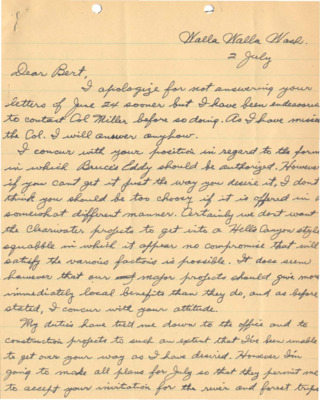 Walla Walla Wash.
2 July
Dear Bert,
I apologize for not answering your
letters of June 24 sooner but I have been endeavoring
to contact Col Miller before so doing. As I have missed
the Col. I will answer anyhow.
I concur with your position in regard to the form
in which Bruces Eddy should be authorized. However
if you cant get it just the way you desire it, I dont
think you should be too choosy if it is offered in a
somewhat different manner. Certainly we dont want
the Clearwater projects to get into a Hells Canyon style
squabble in which it appear no compromise that will
satisfy the various factions is possible. It does seem
however that our major projects should give more
immediately local benefits than they do, and as before
stated, I concur with your attitude.
My duties have tied me down to the office and to
construction projects to such an extent that I've been unable
to get over your way as I have desired. However I'm
going to make all plans for July so that they permit me
to accept your invitation for the river and forest trips